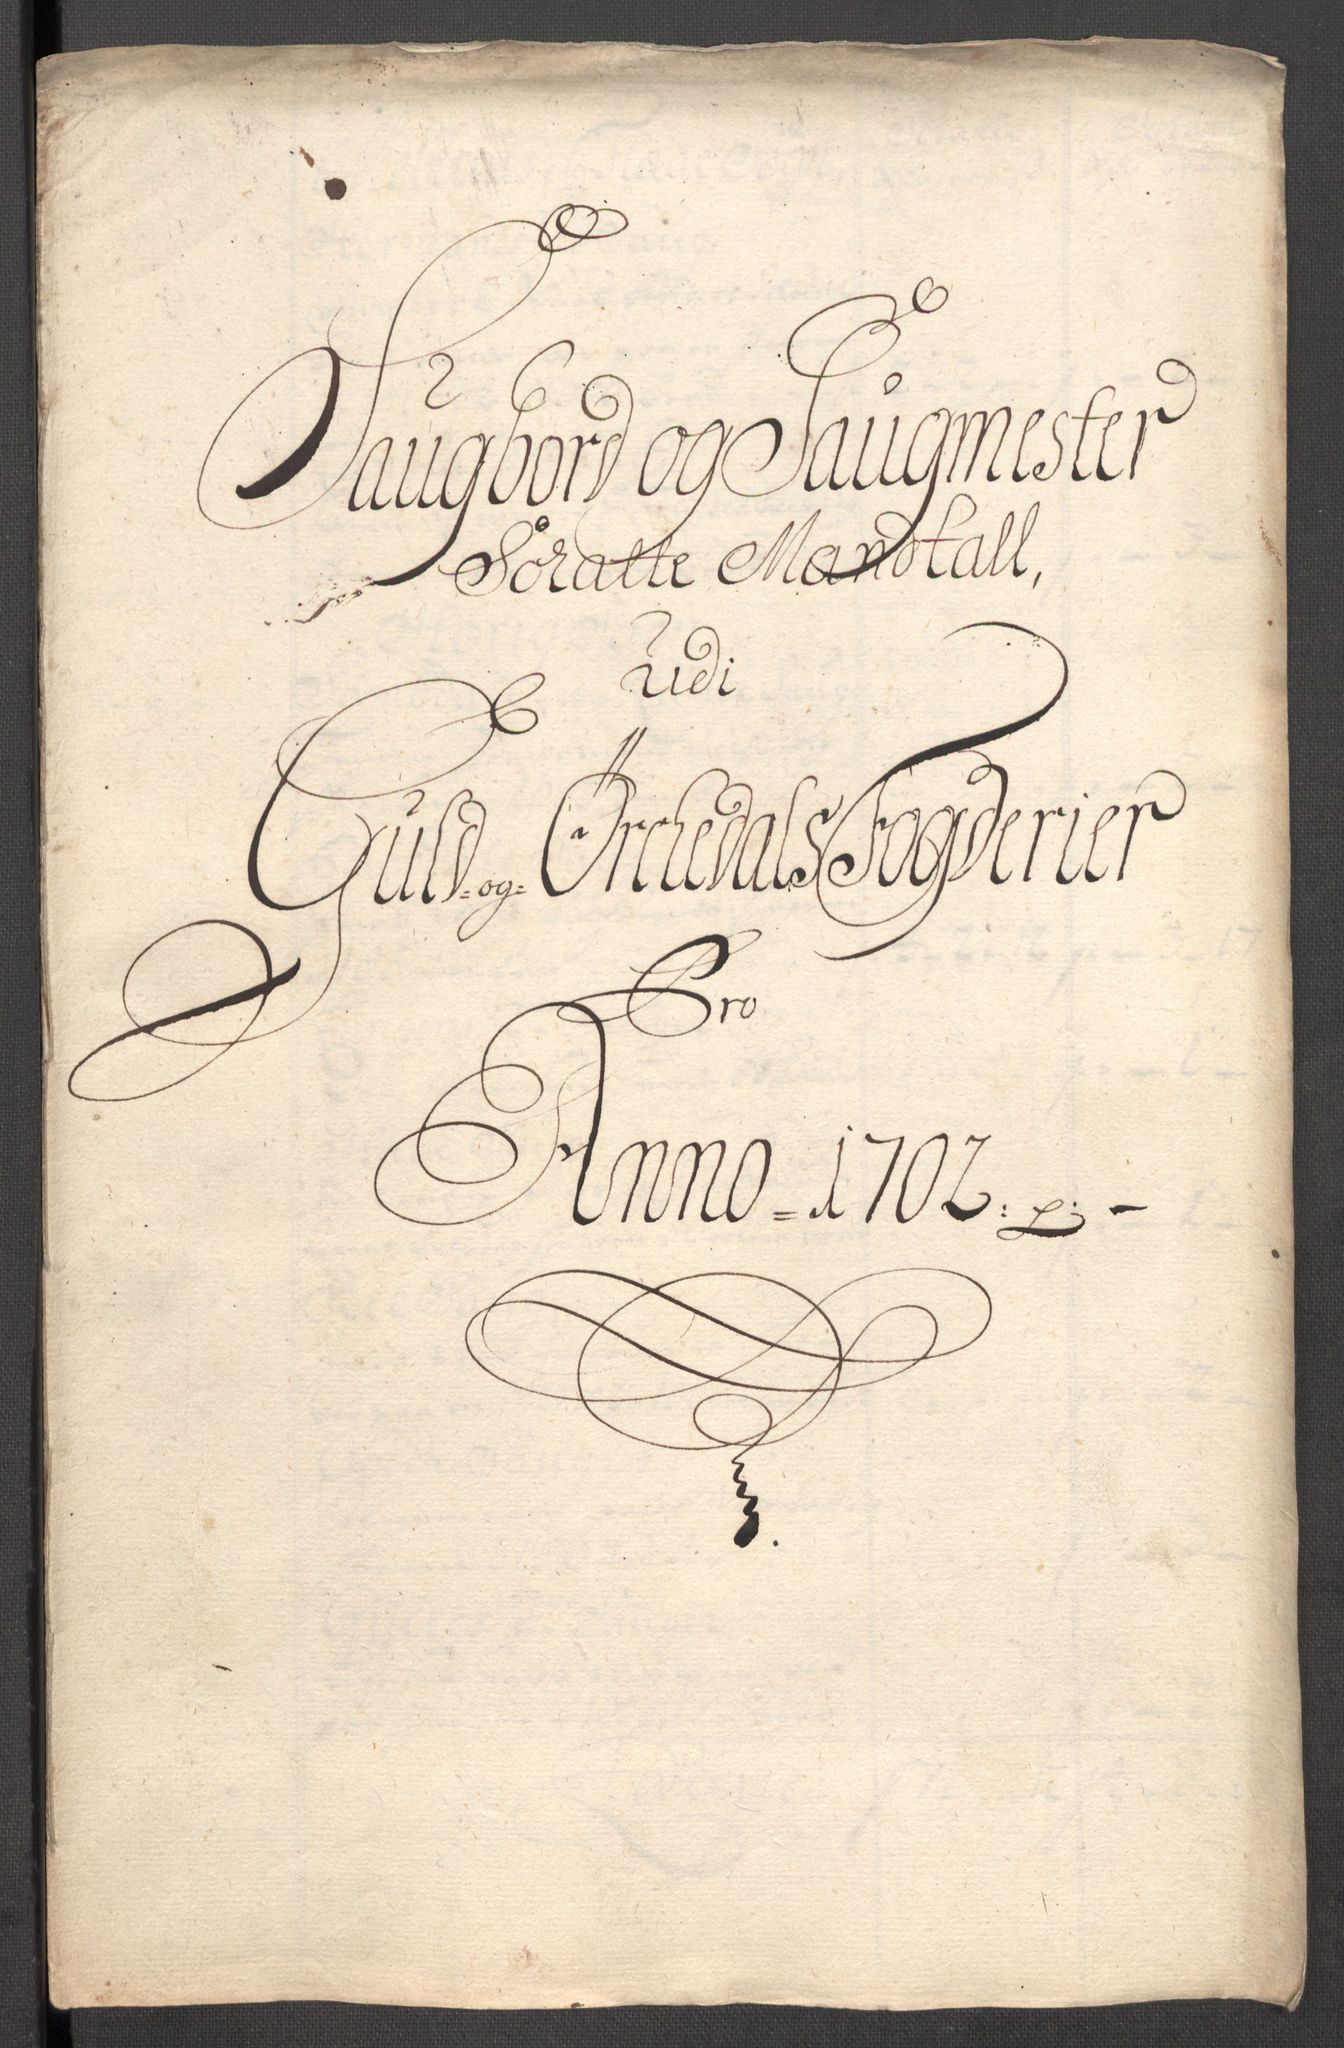 Saugbord og Saugmester
Schatte Mandtall,
Udi
Guld- og- Orchedals Fogderier
Pro
Anno = 1702: